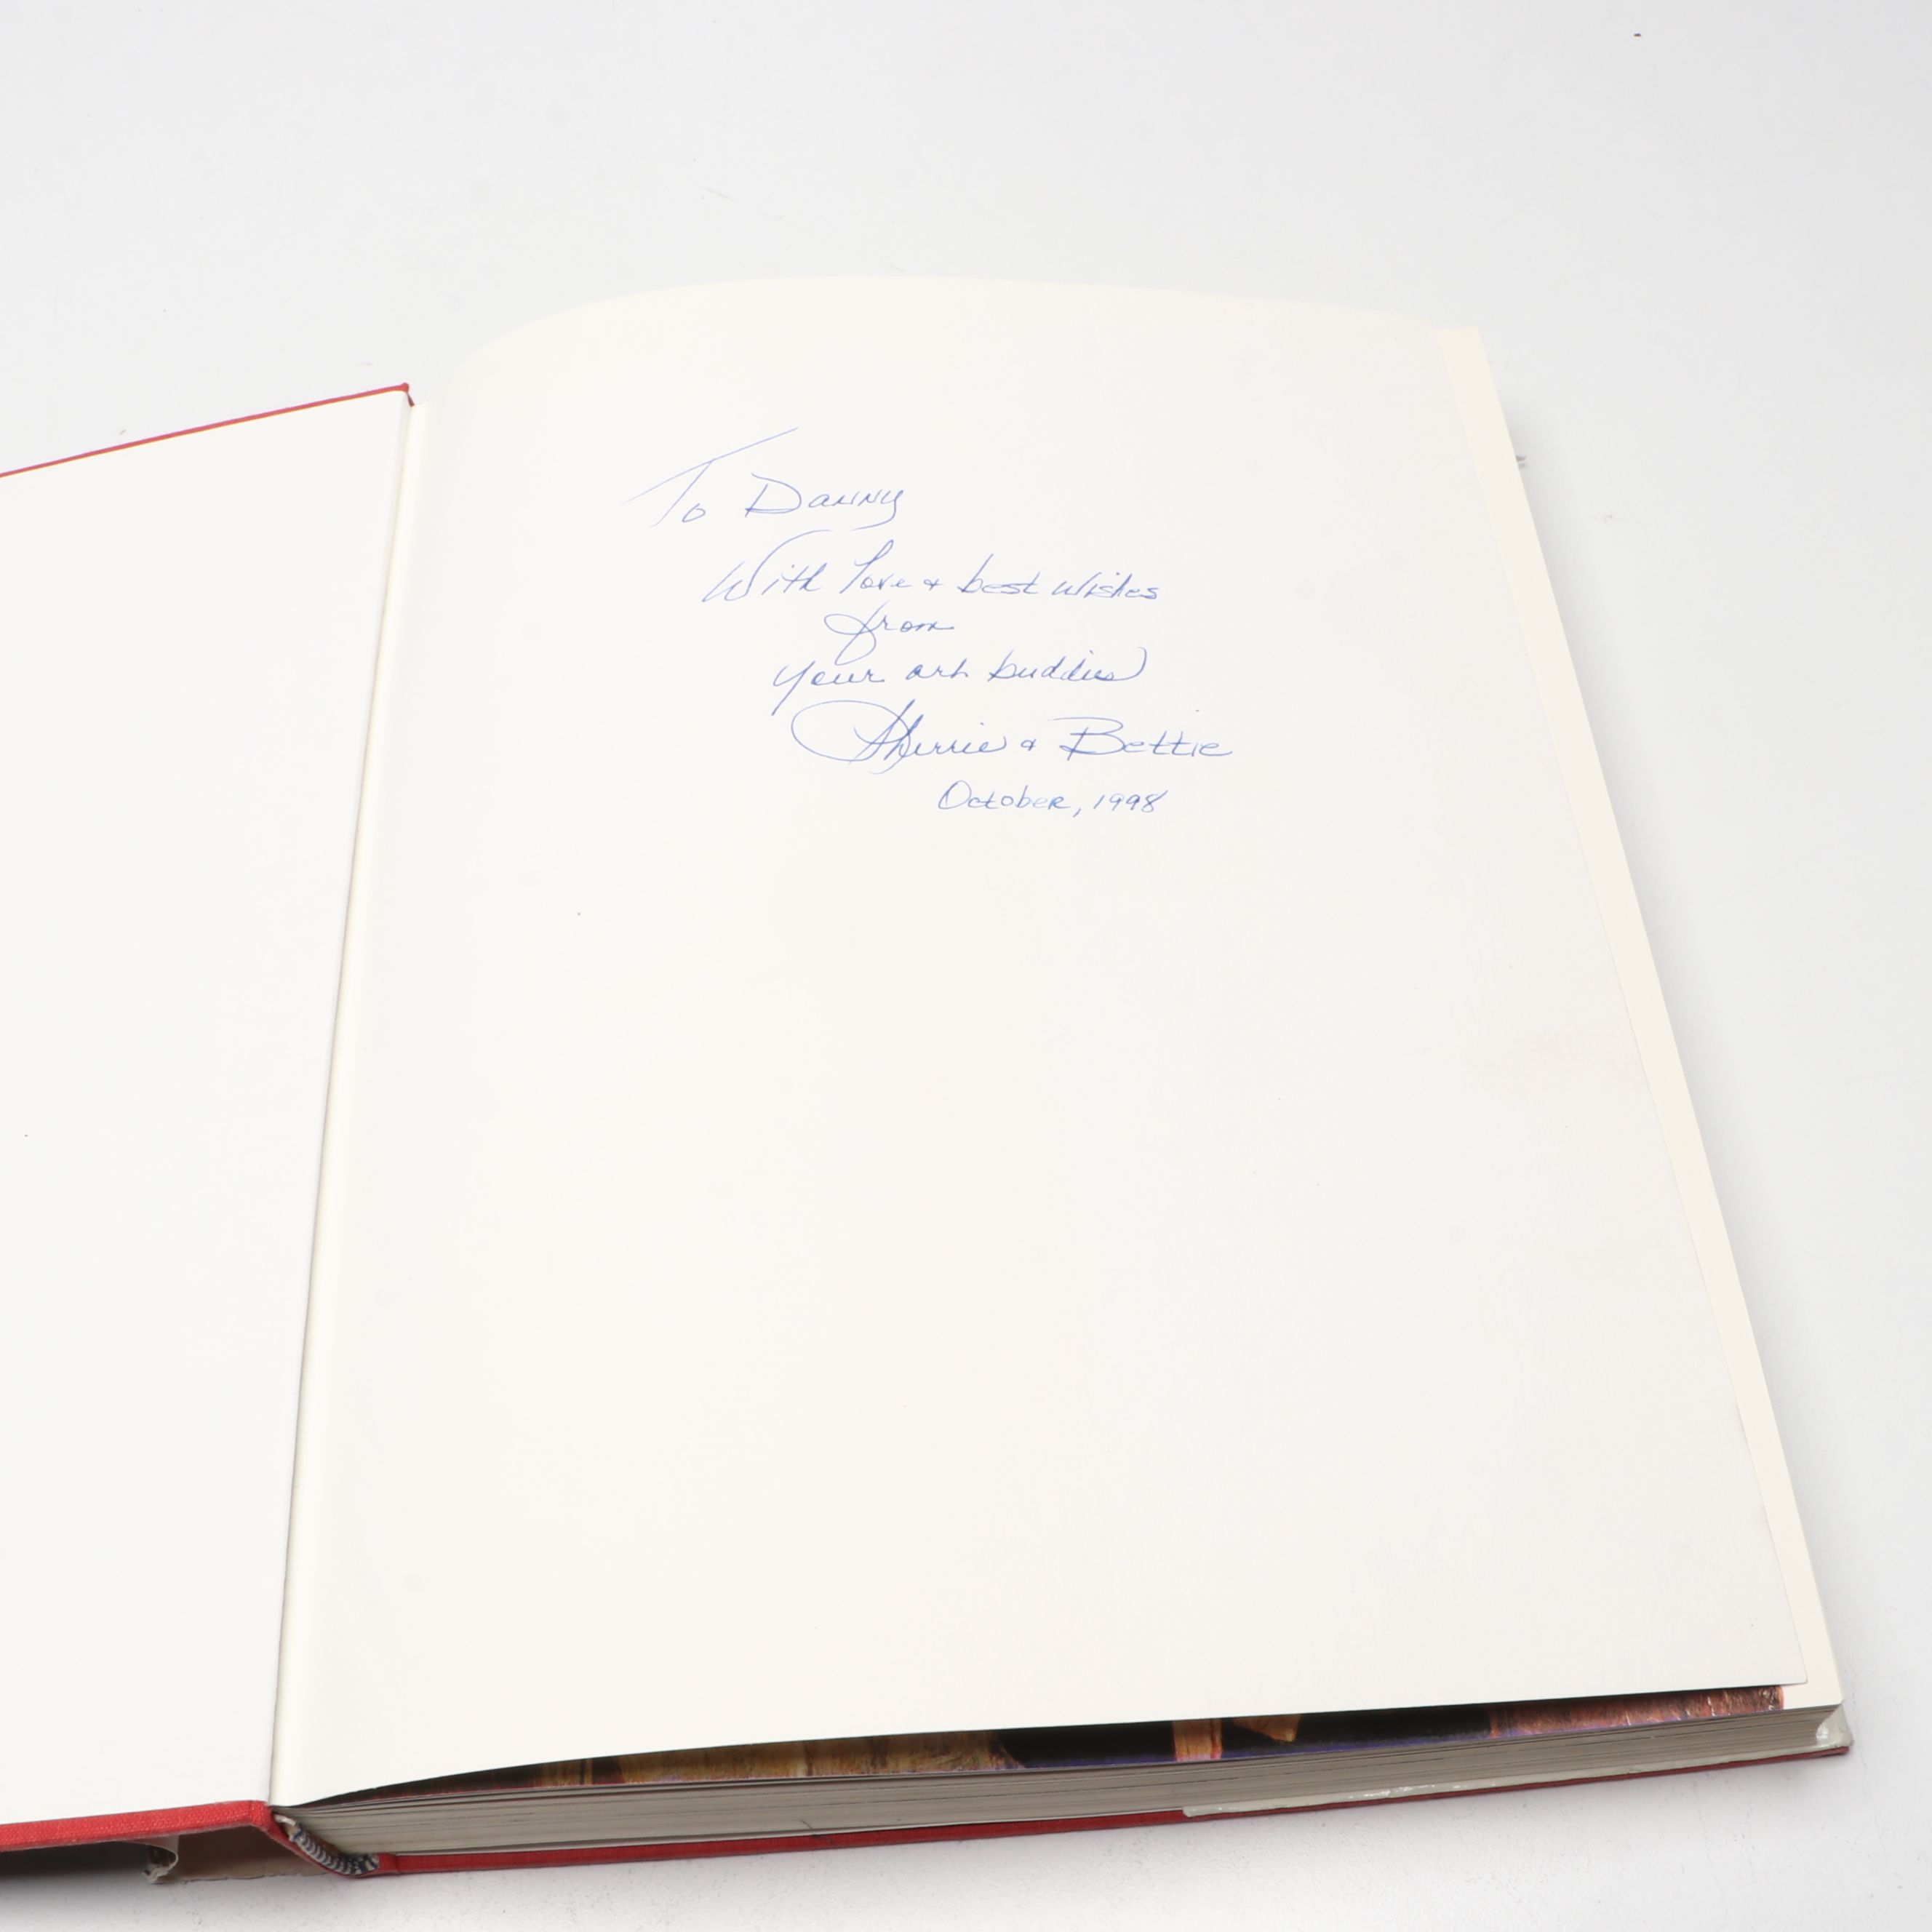 To Danny
With love & best wishes
from
your art buddies
Sherrie & Bettie
October, 1998